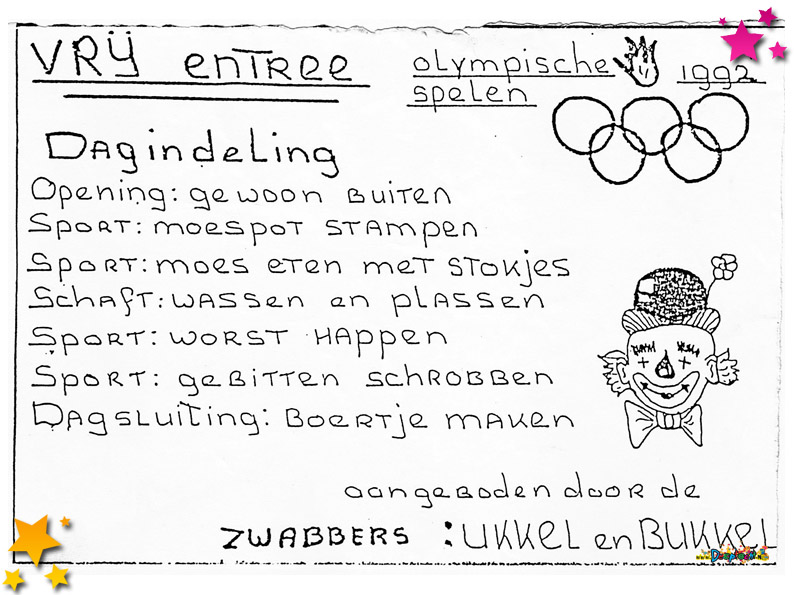 VRIJ ENTREE
OLYMPISCHE SPELEN 1992
DAGINDELING
OPENING: GEWOON BUITEN
SPORT: MOESPOT STAMPEN
SPORT: MOES ETEN MET STOKJES
SCHAFT: WASSEN EN PLASSEN
SPORT: WORST HAPPEN
SPORT: GEBITTEN SCHROBBEN
DAGSLUITING: BOERTJE MAKEN
AANGEBODEN DOOR DE
ZWABBERS : UKKEL en BUKKEL